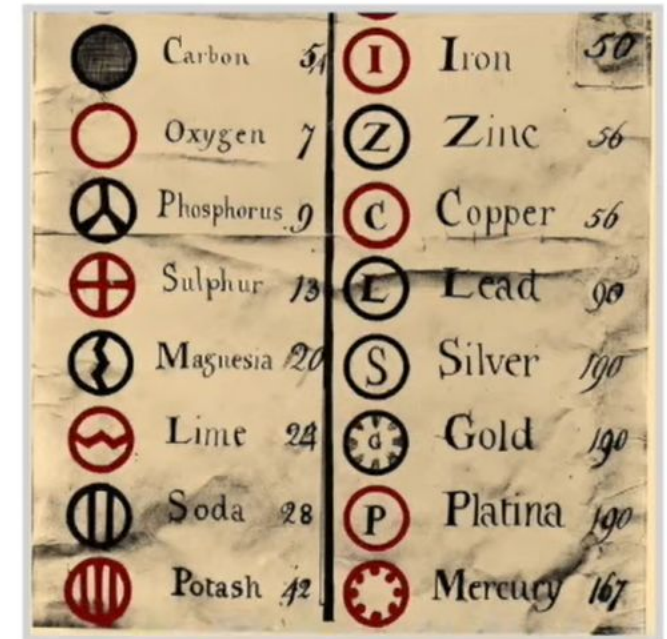 Carbon 5,4
Oxygen 7
Phosphorus 9
Sulphur 13
Magnesia 20
Lime 24
Soda 28
Potash 42
I Iron 50
Z Zinc 56
C Copper 56
L Lead 90
S Silver 190
G Gold 190
P Platina 190
Mercury 167